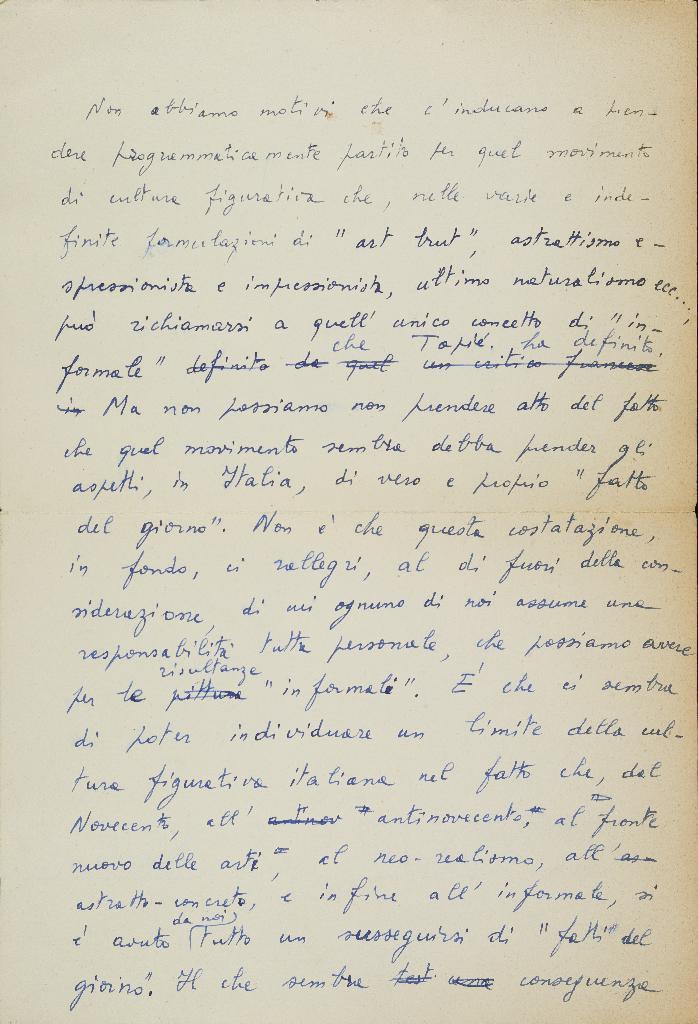 Non abbiamo motivi che c'inducano a pren-
dere programmaticamente partito per quel movimento
di cultura figurativa che, nelle varie e inde-
finite formulazioni di "art brut", astrattismo e-
spressionista e impressionista, ultimo naturalismo ecc...,
può richiamarsi a quell'unico concetto di "in-
che Tapié ha definito.
formale" definito da quel un critico francese
in Ma non possiamo non prendere atto del fatto
che quel movimento sembra debba prender gli
aspetti, in Italia, di vero e proprio "fatto
del giorno". Non è che questa costatazione,
in fondo, ci rallegri, al di fuori della con-
siderazione, di cui ognuno di noi assume una
responsabilità tutta personale, che possiamo avere
risultanze
per le pittura "informali". E' che ci sembra
di poter individuare un limite della cul-
tura figurativa italiana nel fatto che, dal
Novecento, all' antinov "antinovecento", al "fronte
nuovo delle arti", al neo-realismo, all'as-
astratto-concreto, e infine all'informale, si
da noi
è avuto tutto un susseguirsi di "fatti" del
giorno". Il che sembra test una conseguenza